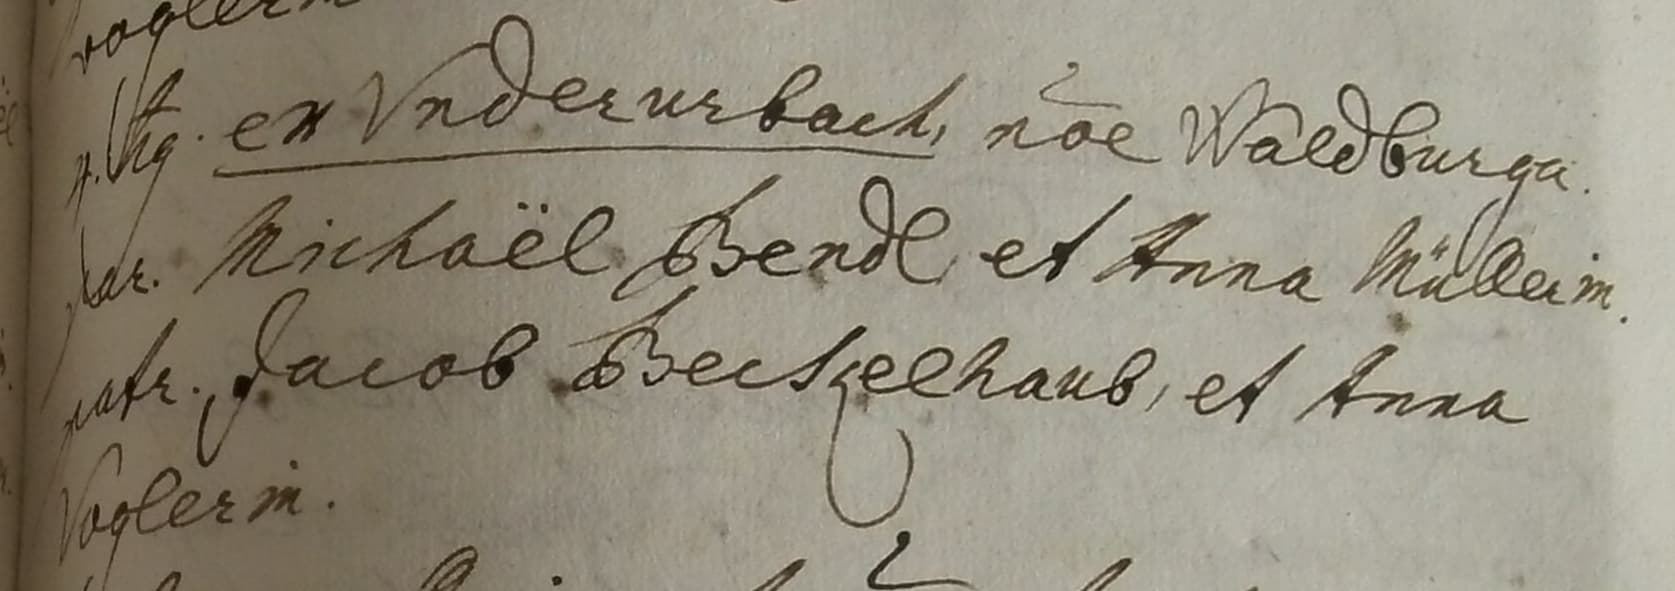 Voglerin
ex Vnderurbach, nõe Waldburga.
par. Michaël Bendl et Anna Müllerin.
patr. Jacob Beckhelhaub, et Anna
Voglerin.